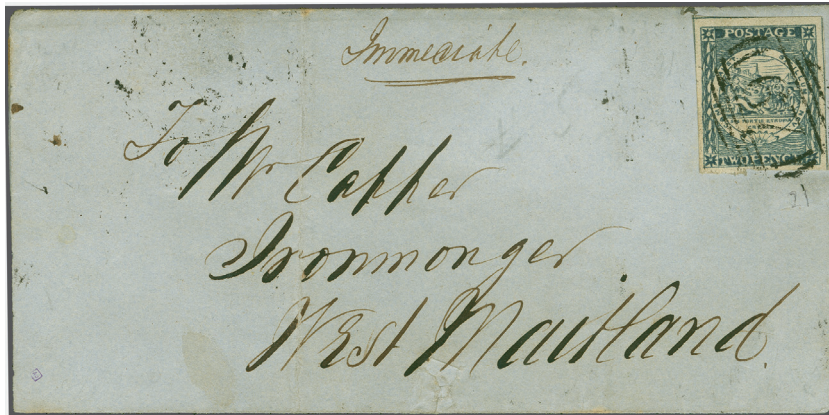 Immediate.
POSTAGE
TWO PENCE
To Mr Capper
Ironmonger
West Maitland.